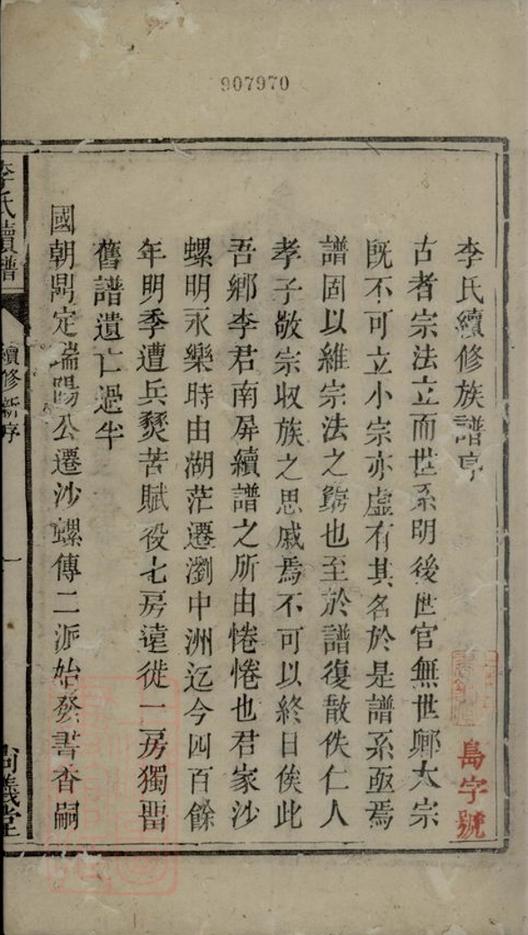 907970
李氏續修族譜序
古者宗法立而世系明後世官無世卿大宗
既不可立小宗亦虛有其名於是譜系亟焉
譜固以維宗法之窮也至於譜復散佚仁人
孝子敬宗收族之思戚焉不可以終日俟此
吾鄉李君南屏續譜之所由惓惓也君家沙
螺明永樂時由湖茫遷瀏中洲迄今四百餘
年明季遭兵燹苦賦役七房遠徙一房獨留
舊譜遺亡過半
國朝鼎定瑞陽公遷沙螺傳二派始發書香嗣
李氏續譜
續修新序
一
尚義堂
島字號